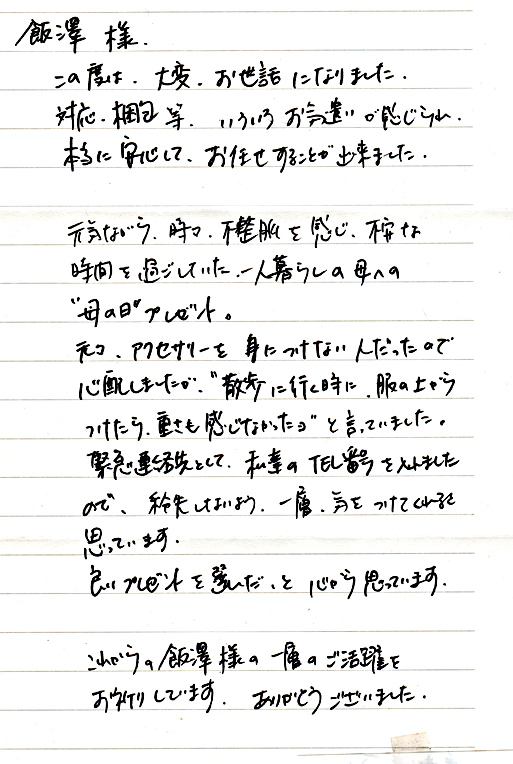 飯澤 様.
この度は、大変、お世話になりました.
対応、梱包 等、いろいろ お気遣いが感じられ、
本当に 安心して、お任せすることが出来ました.
元気ながら、時々、不整脈を感じ、不安な
時間を過ごしていた、一人暮らしの母への
"母の日"プレゼント。
元々、アクセサリーを身につけない人だったので
心配しましたが、"散歩に行く時に、服の上から
つけたら、重さも感じなかったョ"と言っていました。
緊急連絡先として、私達のTEL番号を入れました
ので、紛失しないよう、一層、気をつけてくれると
思っています.
良いプレゼントを選んだ、と 心から思っています.
これからの飯澤様の一層のご活躍を
お祈りしています. ありがとうございました.